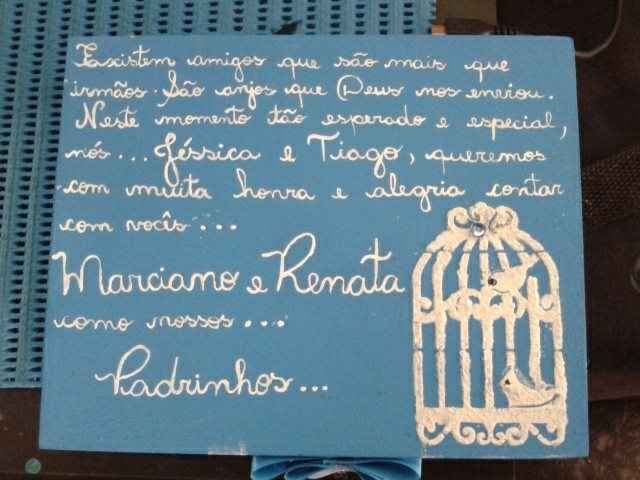 Existem amigos que são mais que
irmãos. São anjos que Deus nos enviou.
Neste momento tão esperado e especial,
nós... Jéssica e Tiago, queremos
com muita honra e alegria contar
com vocês...
Marciano e Renata
como nossos...
Padrinhos...